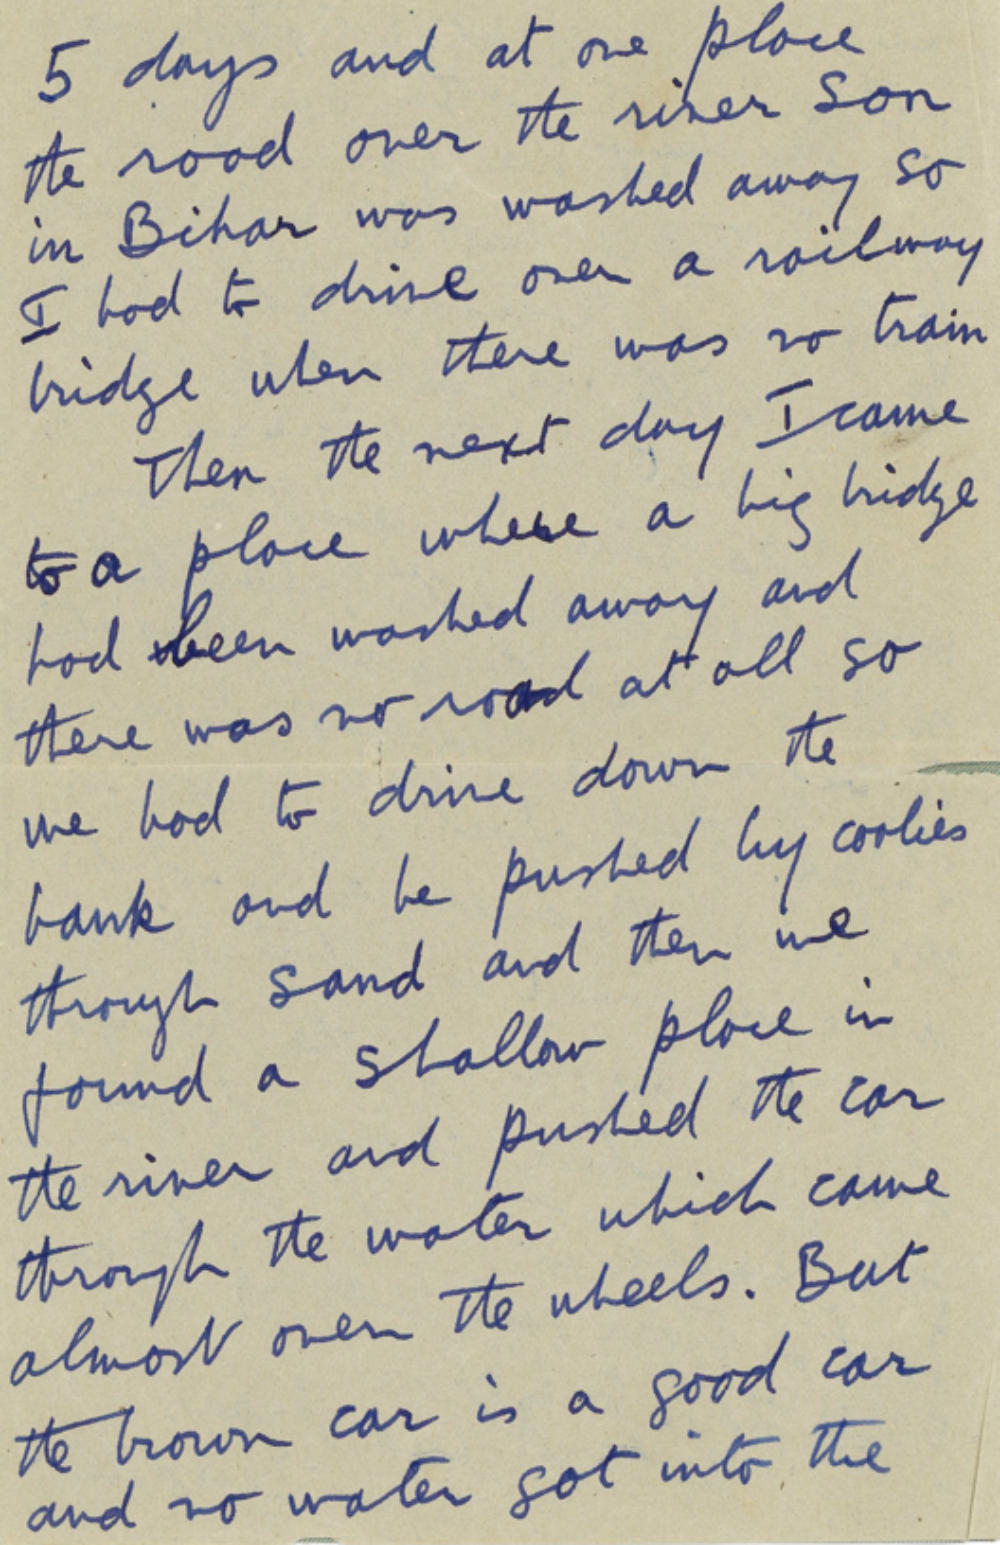 5 days and at one place
the road over the river Son
in Bihar was washed away so
I had to drive over a railway
bridge when there was no train
Then the next day I came
to a place where a big bridge
had been washed away and
there was no road at all so
we had to drive down the
bank and be pushed by coolies
through sand and then we
found a shallow place in
the river and pushed the car
through the water which came
almost over the wheels. But
the brown car is a good car
and no water got into the